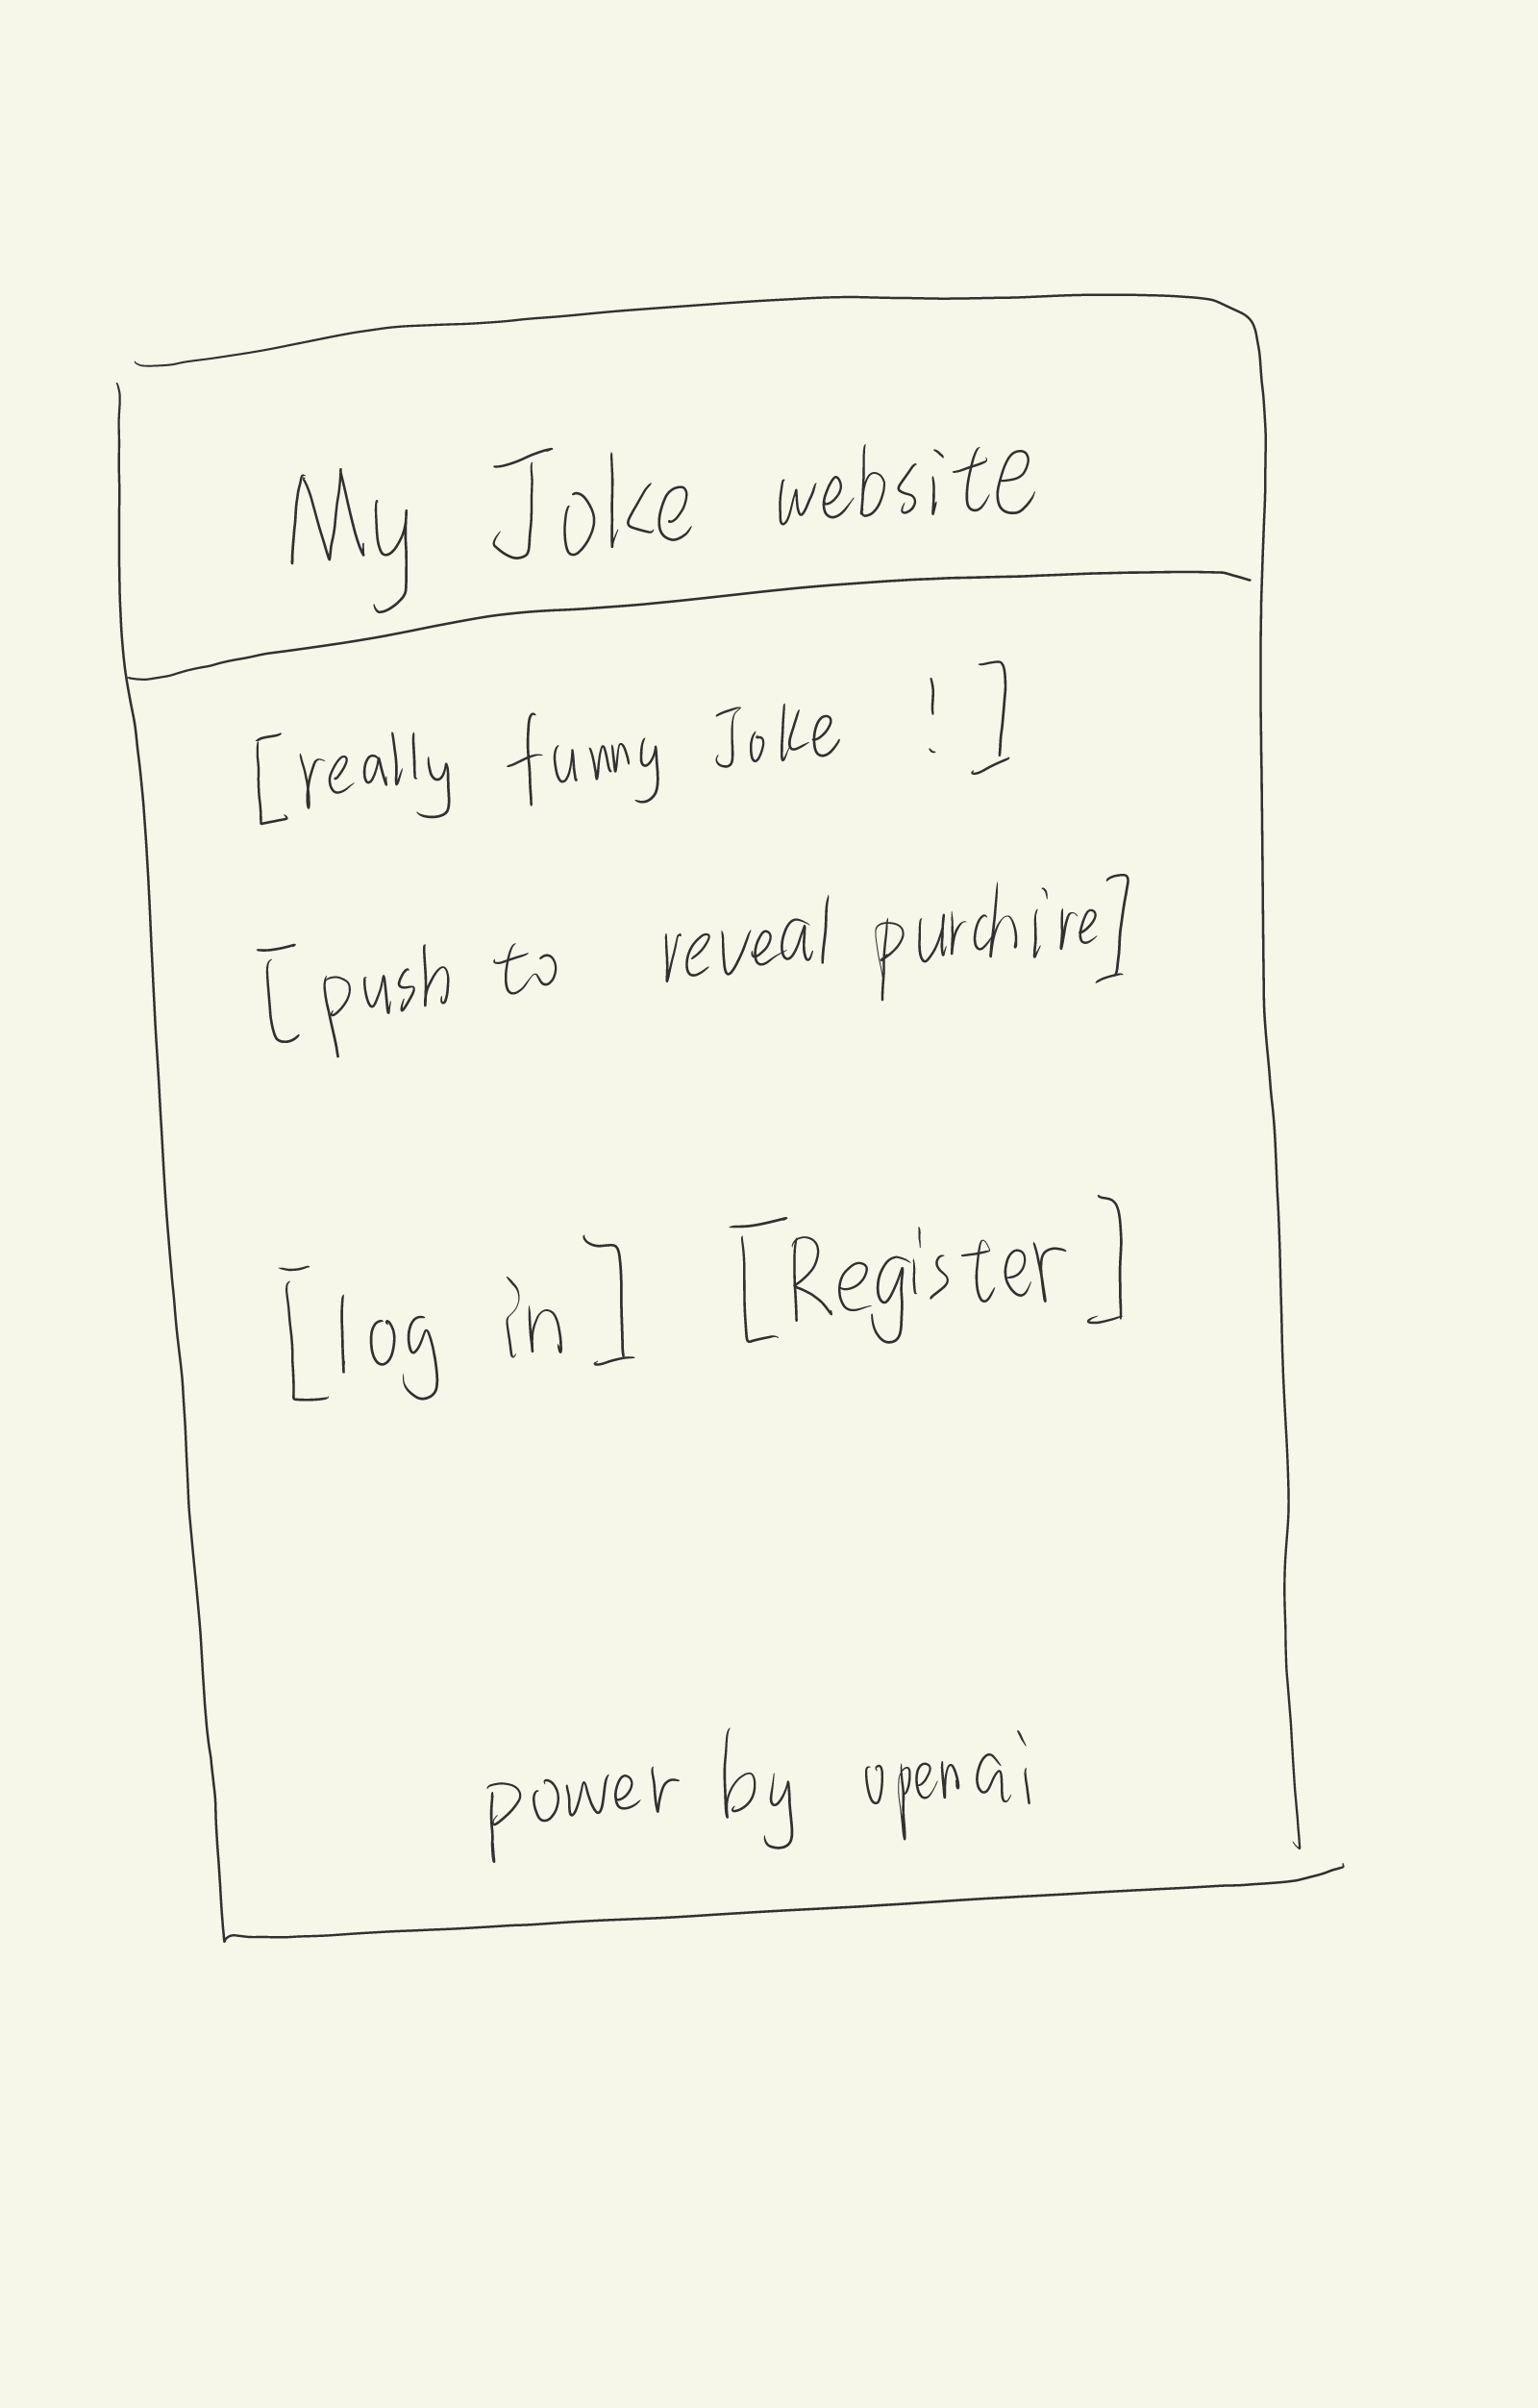 My Joke website
[really funny Joke !]
[push to reveal purchire]
[log in] [Register]
power by openai